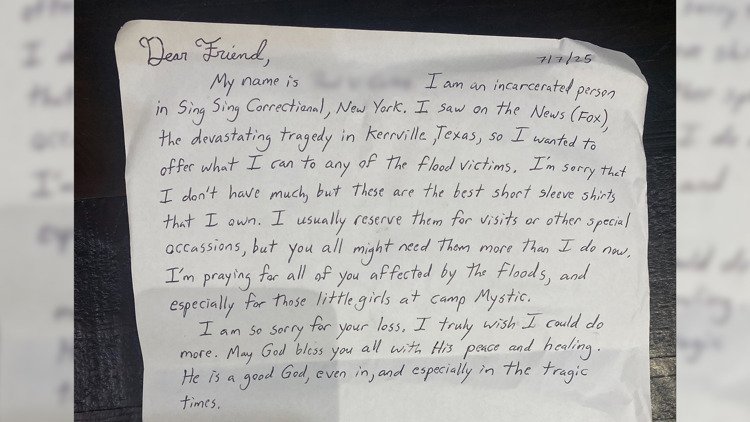 Dear Friend,
7/7/25
My name is I am an incarcerated person
in Sing Sing Correctional, New York. I saw on the News (Fox),
the devastating tragedy in Kerrville, Texas, so I wanted to
offer what I can to any of the flood victims. I'm sorry that
I don't have much, but these are the best short sleeve shirts
that I own. I usually reserve them for visits or other special
occassions, but you all might need them more than I do now.
I'm praying for all of you affected by the floods, and
especially for those little girls at camp Mystic.
I am so sorry for your loss. I truly wish I could do
more. May God bless you all with His peace and healing.
He is a good God, even in, and especially in the tragic
times.